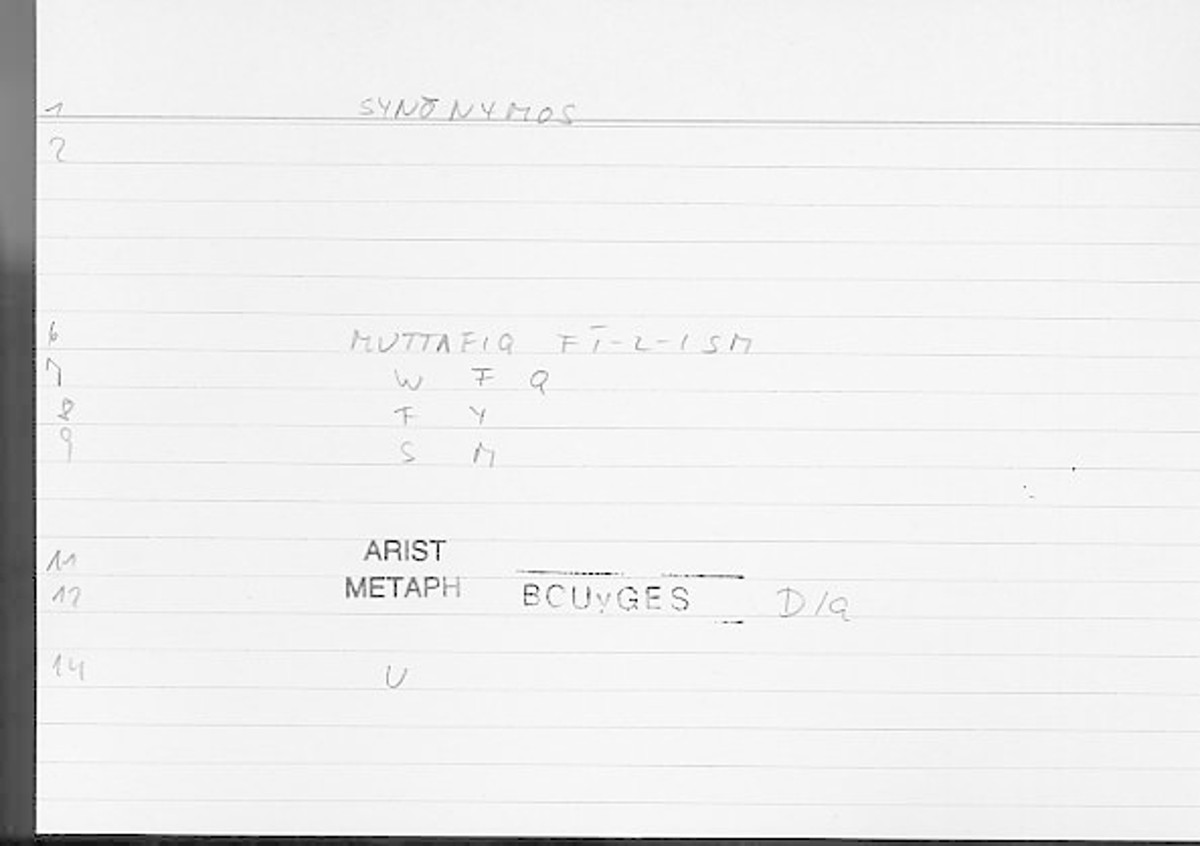 1 SYNŌNYMOS
2
6 MUTTAFIQ FĪ-L-ISM
7 W F Q
8 F Y
9 S M
11 ARIST
12 METAPH BCUyGES D/a
14 U